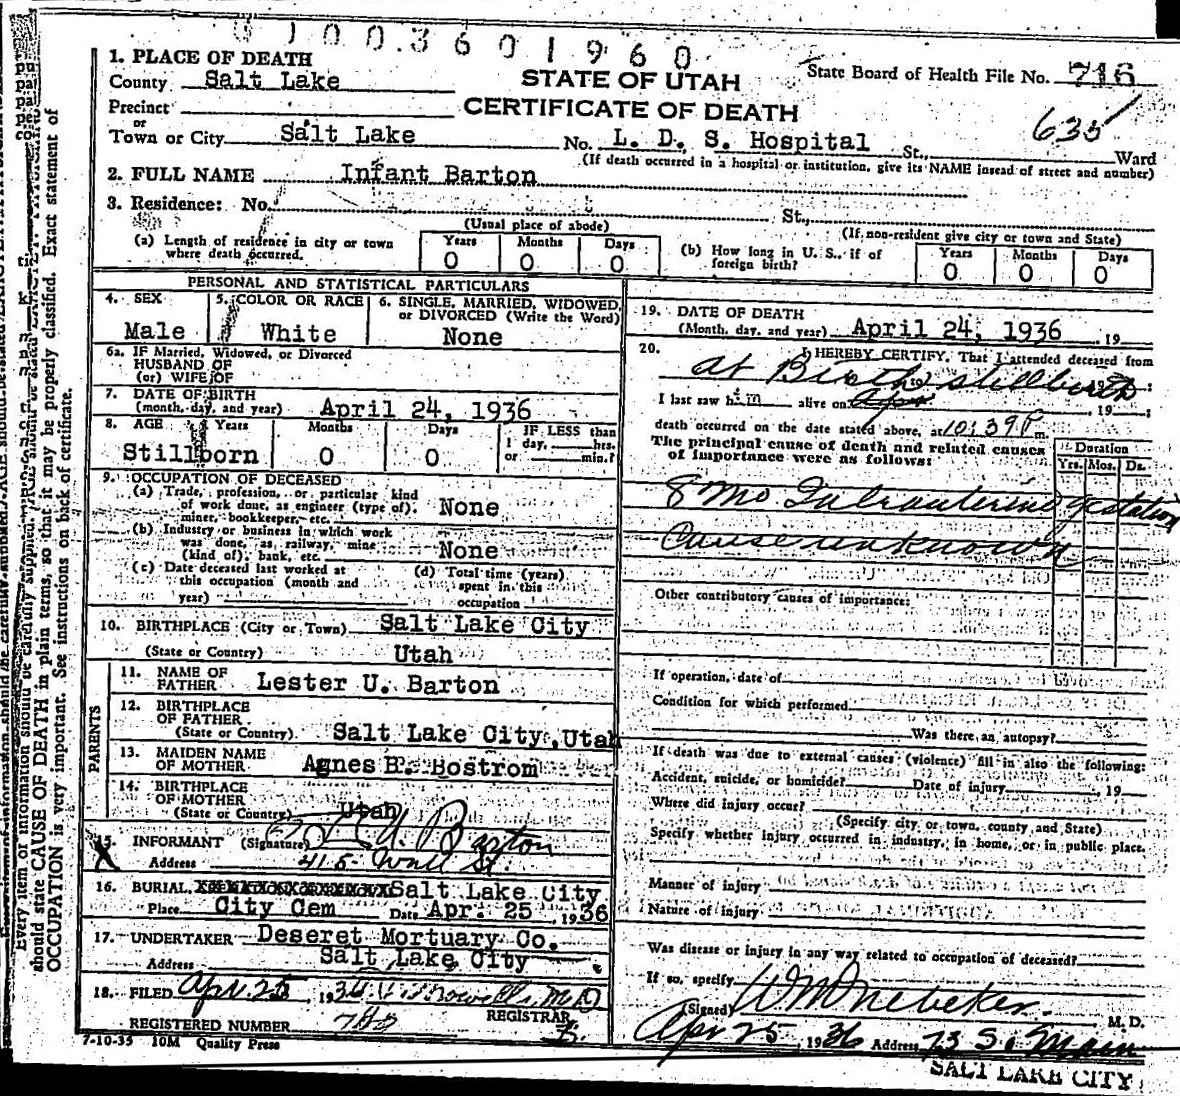 1003601960
1. PLACE OF DEATH
County Salt Lake
STATE OF UTAH
State Board of Health File No. 716
Precinct
CERTIFICATE OF DEATH
635
or
Town or City Salt Lake No. L. D. S. Hospital St., Ward
(If death occurred in a hospital or institution, give its NAME insead of street and number)
2. FULL NAME Infant Barton
3. Residence: No. St.,
(Usual place of abode) (If non-resident give city or town and State)
(a) Length of residence in city or town where death occurred. Years 0 Months 0 Days 0
(b) How long in U. S., if of foreign birth? Years 0 Months 0 Days 0
PERSONAL AND STATISTICAL PARTICULARS
4. SEX Male
5. COLOR OR RACE White
6. SINGLE, MARRIED, WIDOWED, or DIVORCED (Write the Word) None
6a. IF Married, Widowed, or Divorced
HUSBAND OF
(or) WIFE OF
7. DATE OF BIRTH
(month, day, and year) April 24, 1936
8. AGE Years Months Days IF LESS than
1 day, hrs.
or min.?
Stillborn 0 0
9. OCCUPATION OF DECEASED
(a) Trade, profession, or particular kind
of work done, as engineer (type of),
miner, bookkeeper, etc. None
(b) Industry or business in which work
was done, as railway, mine
(kind of), bank, etc. None
(c) Date deceased last worked at
this occupation (month and
year)
(d) Total time (years)
spent in this
occupation
10. BIRTHPLACE (City or Town) Salt Lake City
(State or Country) Utah
PARENTS
11. NAME OF
FATHER Lester U. Barton
12. BIRTHPLACE
OF FATHER
(State or Country) Salt Lake City, Utah
13. MAIDEN NAME
OF MOTHER Agnes B. Bostrom
14. BIRTHPLACE
OF MOTHER
(State or Country) Utah
15. INFORMANT (Signature) U. Barton
Address 415 Wall St.
16. BURIAL Salt Lake City
Place City Cem Date Apr. 25 1936
17. UNDERTAKER Deseret Mortuary Co.
Address Salt Lake City
18. FILED Apr. 25 1936 M D
REGISTRAR
REGISTERED NUMBER
7-10-35 10M Quality Press
19. DATE OF DEATH
(Month, day, and year) April 24, 1936 19
20. I HEREBY CERTIFY, That I attended deceased from
at Birth stillbirth
I last saw him alive on 19 ;
death occurred on the date stated above, at 10:39 P m.
The principal cause of death and related causes
of importance were as follows:
Duration
Yrs. Mos. Ds.
8 mo Intrauterine gestation
Cause unknown
Other contributory causes of importance:
If operation, date of
Condition for which performed
Was there an autopsy?
If death was due to external causes (violence) fill in also the following:
Accident, suicide, or homicide? Date of injury 19
Where did injury occur?
(Specify city or town, county and State)
Specify whether injury occurred in industry, in home, or in public place.
Manner of injury
Nature of injury
Was disease or injury in any way related to occupation of deceased?
If so, specify
(Signed) W M Nebeker M. D.
Apr 25 1936 Address 73 S. Main
SALT LAKE CITY
should state CAUSE OF DEATH in plain terms, so that it may be properly classified. Exact statement of
OCCUPATION is very important. See instructions on back of certificate.